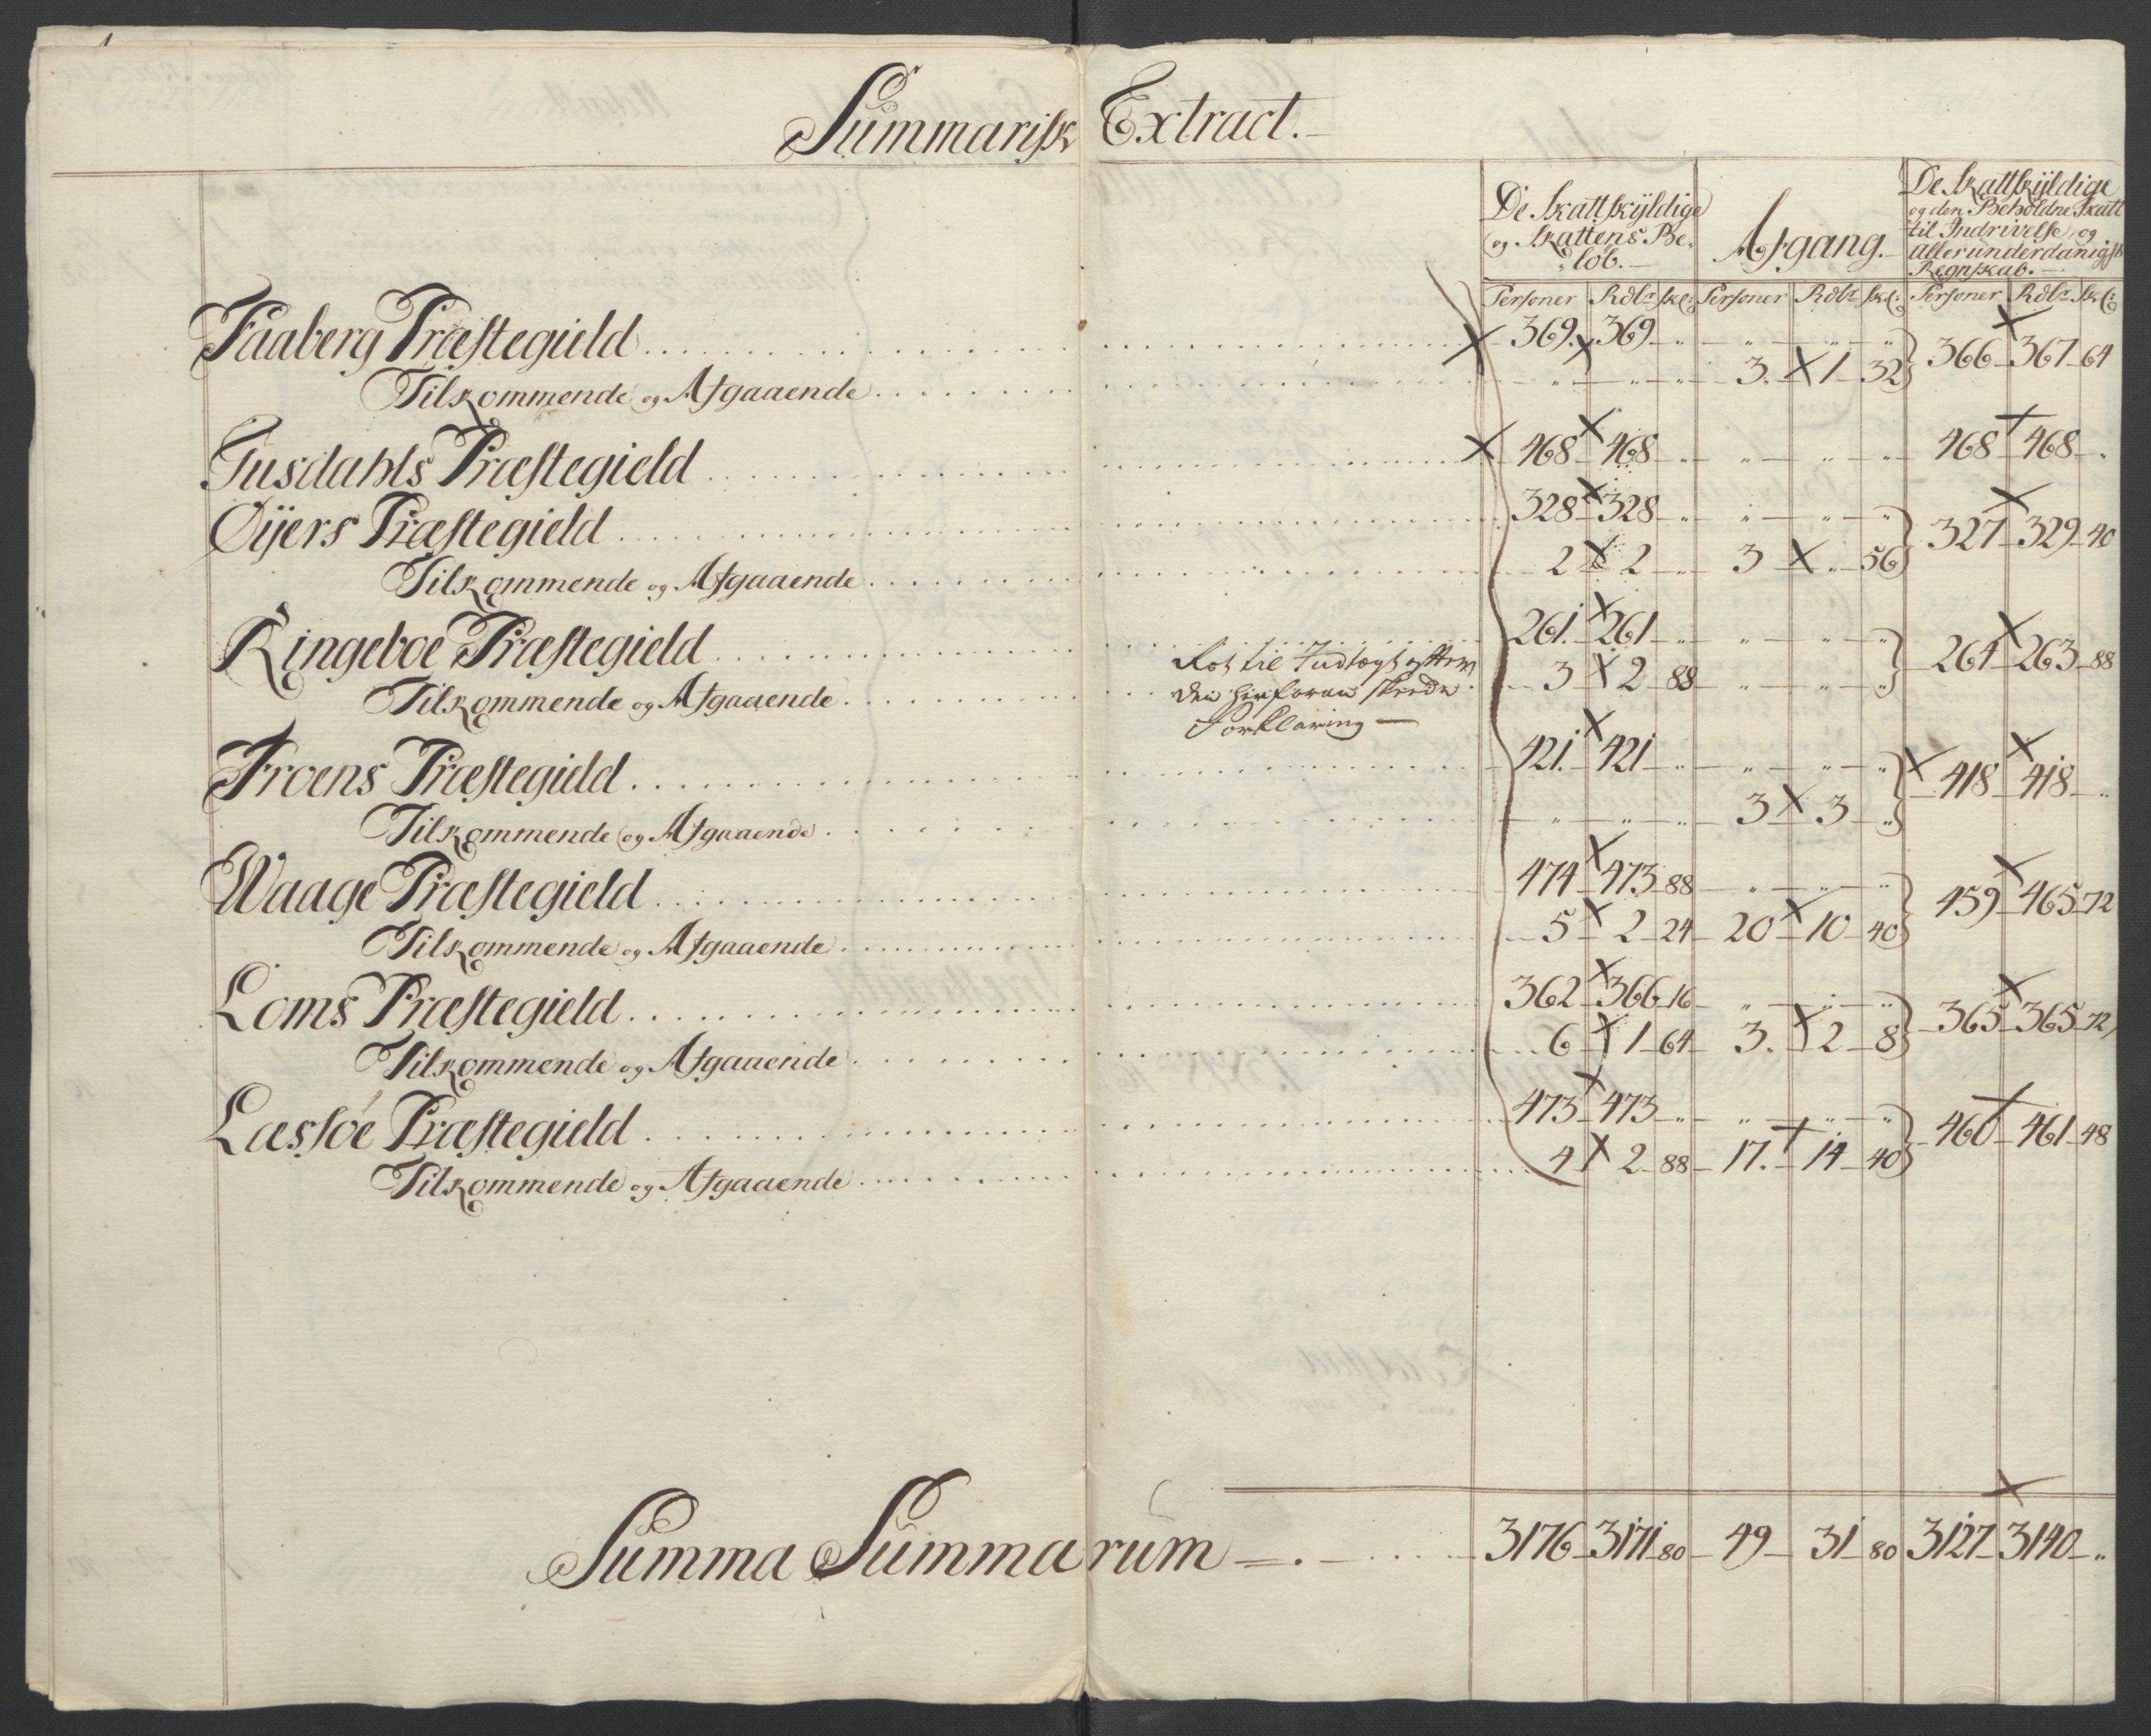 Summarisk Extract.
De Skattskyldige og Skattens Be„ „löb.
Afgang.
De Skattskyldige og den Beholdne Skatt til Indrivelse, og allerunderdanigst Regnskab.
Personer Rdlr skl: Personer Rdlr skl: Personer Rdlr skl:
Faaberg Præstegield 369. 369 " " " " } 366 367 64
Tilkommende og Afgaaende " " " 3. 1 32
Gusdahls Præstegield 468 468 " " " " 468 468 "
Öyers Præstegield 328 328 " " " " } 327 329 40
Tilkommende og Afgaaende 2 2 " 3 " 56
Ringeboe Præstegield 261. 261 " " " " } 264 263 88
til Indtægt
Tilkommende og Afgaaende 3 2 88 " " "
den herforan skeede
Forklaring
Froens Præstegield 421. 421 " " " " } 418 418 "
Tilkommende og Afgaaende " " " 3 3 "
Waage Præstegield 474 473 88 " " " } 459 465 72
Tilkommende og Afgaaende 5 2 24 20 10 40
Loms Præstegield 362 366 16 " " " } 365 365 72
Tilkommende og Afgaaende 6 1 64 3. 2 8
Læssöe Præstegield 473 473 " " " " } 460 461 48
Tilkommende og Afgaaende 4 2 88 17. 14 40
Summa Summarum 3176 3171 80 49 31 80 3127 3140 "